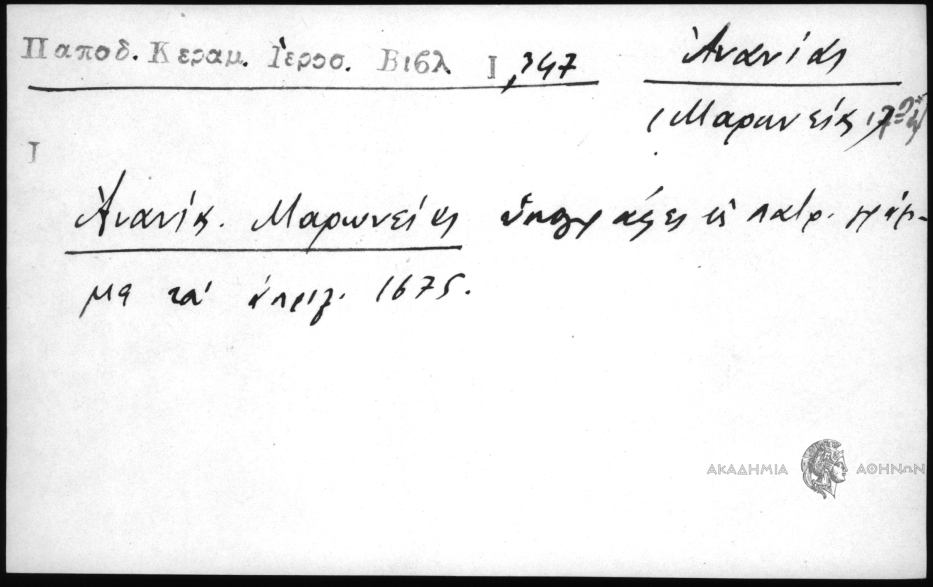 Παποδ. Κεραμ. Ἱεροσ. Βιβλ I, 347
Ἀνανίας
(Μαρωνείας) 17ος
I
Ἀνανίας Μαρωνείας ὑπογράφει εἰς πατρ. γράμ-
μα τοῦ ἀπριλ. 1675.
ΑΚΑΔΗΜΙΑ ΑΘΗΝΩΝ